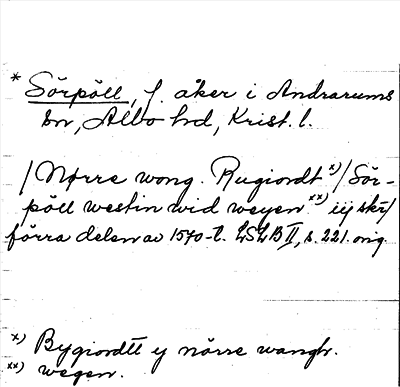 * Sörpöll, f. åker i Andrarums
sn, Albo hd, Krist. l.
/ Nørre wong. Rugiordt x) / Sör-
pöll westin wid weyen xx) iij skr/
förra delen av 1570-t. LSLB II, s. 221. orig.
x) Bygiordtt y nörre wangh.
xx) wegen.